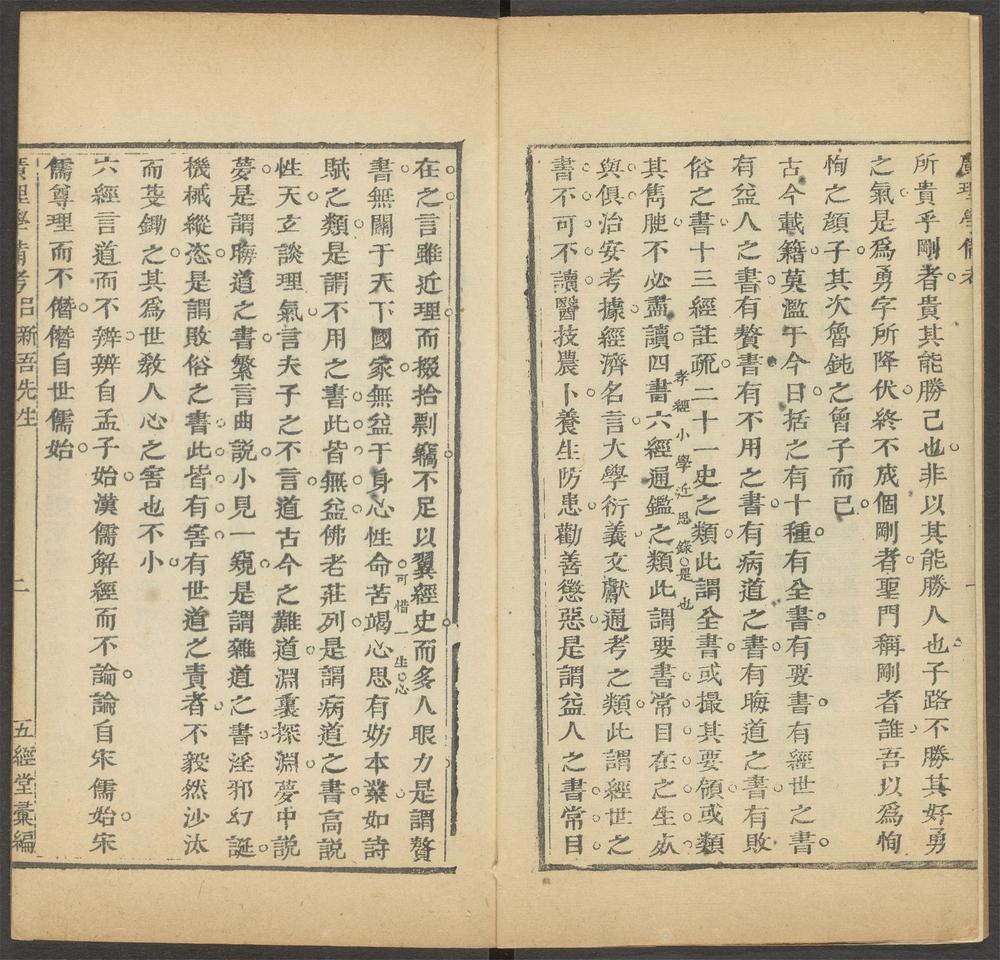 廣理學備考
所貴乎剛者貴其能勝己也非以其能勝人也子路不勝其好勇
之氣是爲勇字所降伏終不成個剛者聖門稱剛者誰吾以爲恂
恂之顔子其次魯鈍之曾子而已
古今載籍莫濫于今日括之有十種有全書有要書有經世之書
有益人之書有贅書有不用之書有病道之書有晦道之書有敗
俗之書十三經註疏二十一史之類此謂全書或撮其要領或類
孝經小學近思錄是也
其雋腴不必盡讀四書六經通鑑之類此謂要書常目在之生死
與俱治安考據經濟名言大學衍義文獻通考之類此謂經世之
書不可不讀醫技農卜養生防患勸善懲惡是謂益人之書常目
在之言雖近理而掇拾剽竊不足以翼經史而多人眼力是謂贅
可惜一生心
書無關于天下國家無益于身心性命苦竭心思有妨本業如詩
賦之類是謂不用之書此皆無益佛老莊列是謂病道之書高說
性天玄談理氣言夫子之不言道古今之難道淵裏探淵夢中說
夢是謂晦道之書繁言曲說小見一窺是謂雜道之書淫邪幻誕
機械縱恣是謂敗俗之書此皆有害有世道之責者不毅然沙汰
而芟鋤之其爲世教人心之害也不小
六經言道而不辨辨自孟子始漢儒解經而不論論自宋儒始宋
儒尊理而不僭僭自世儒始
廣理學備考 呂新吾先生 二 五經堂彙編